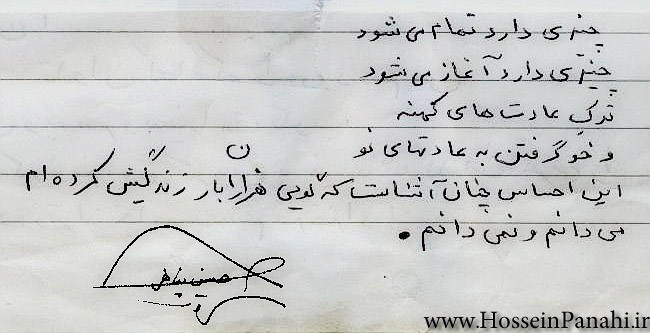 چیزی دارد تمام می شود
چیزی دارد آغاز می شود
ترک عادت های کهنه
و خو گرفتن به عادتهای نو
این احساس چنان آشناست که گویی هزاران بار زندگیش کرده ام
می دانم و نمی دانم .
حسین پناهی
www.HosseinPanahi.ir